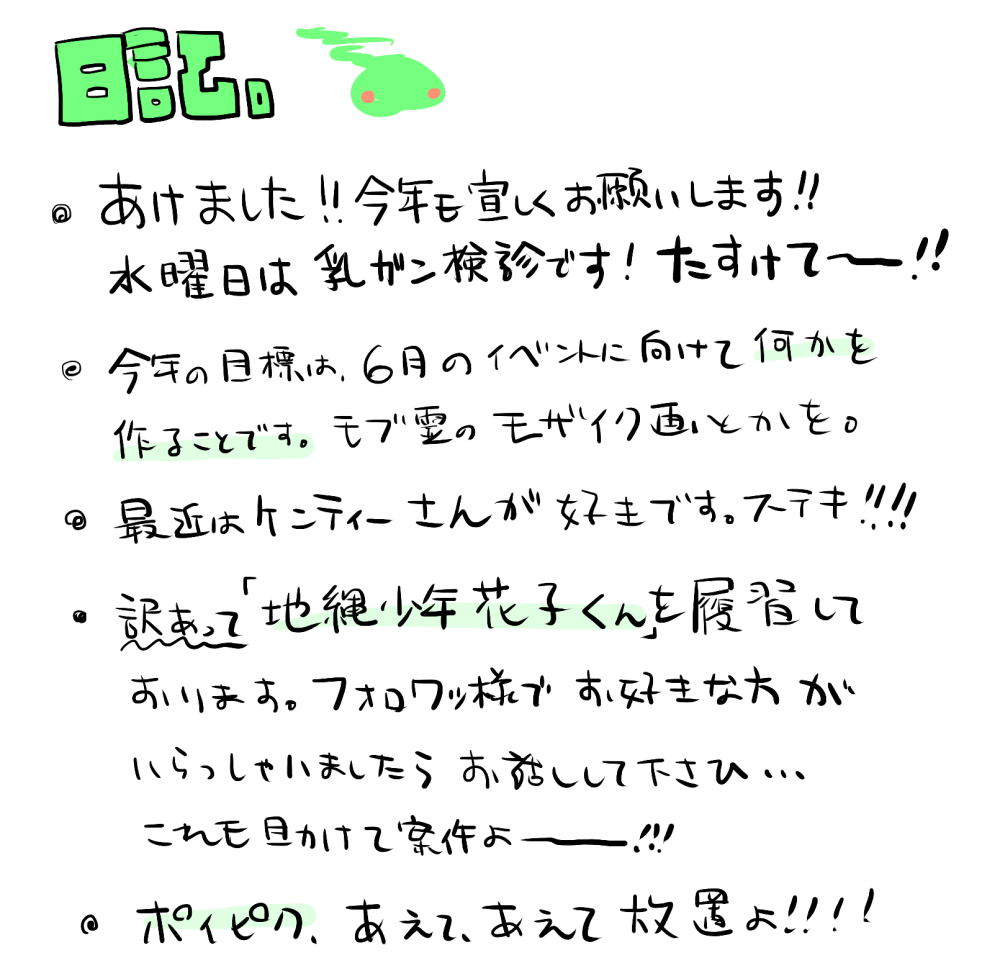 日記。
あけました!!今年も宜しくお願いします!!
水曜日は乳ガン検診です!たすけて〜ー!!
今年の目標は、6月のイベントに向けて何かを
作ることです。モブ霊のモザイク画とかを。
最近はケンティーさんが好きです。ステキ!!!!
訳あって「地縛少年花子くん」を履習して
おります。フォロワッ様でお好きな方が
いらっしゃいましたらお話しして下さひ…
これも目かけて案件よーー!!!
ポイピク、あえて、あえて放置よ!!!!